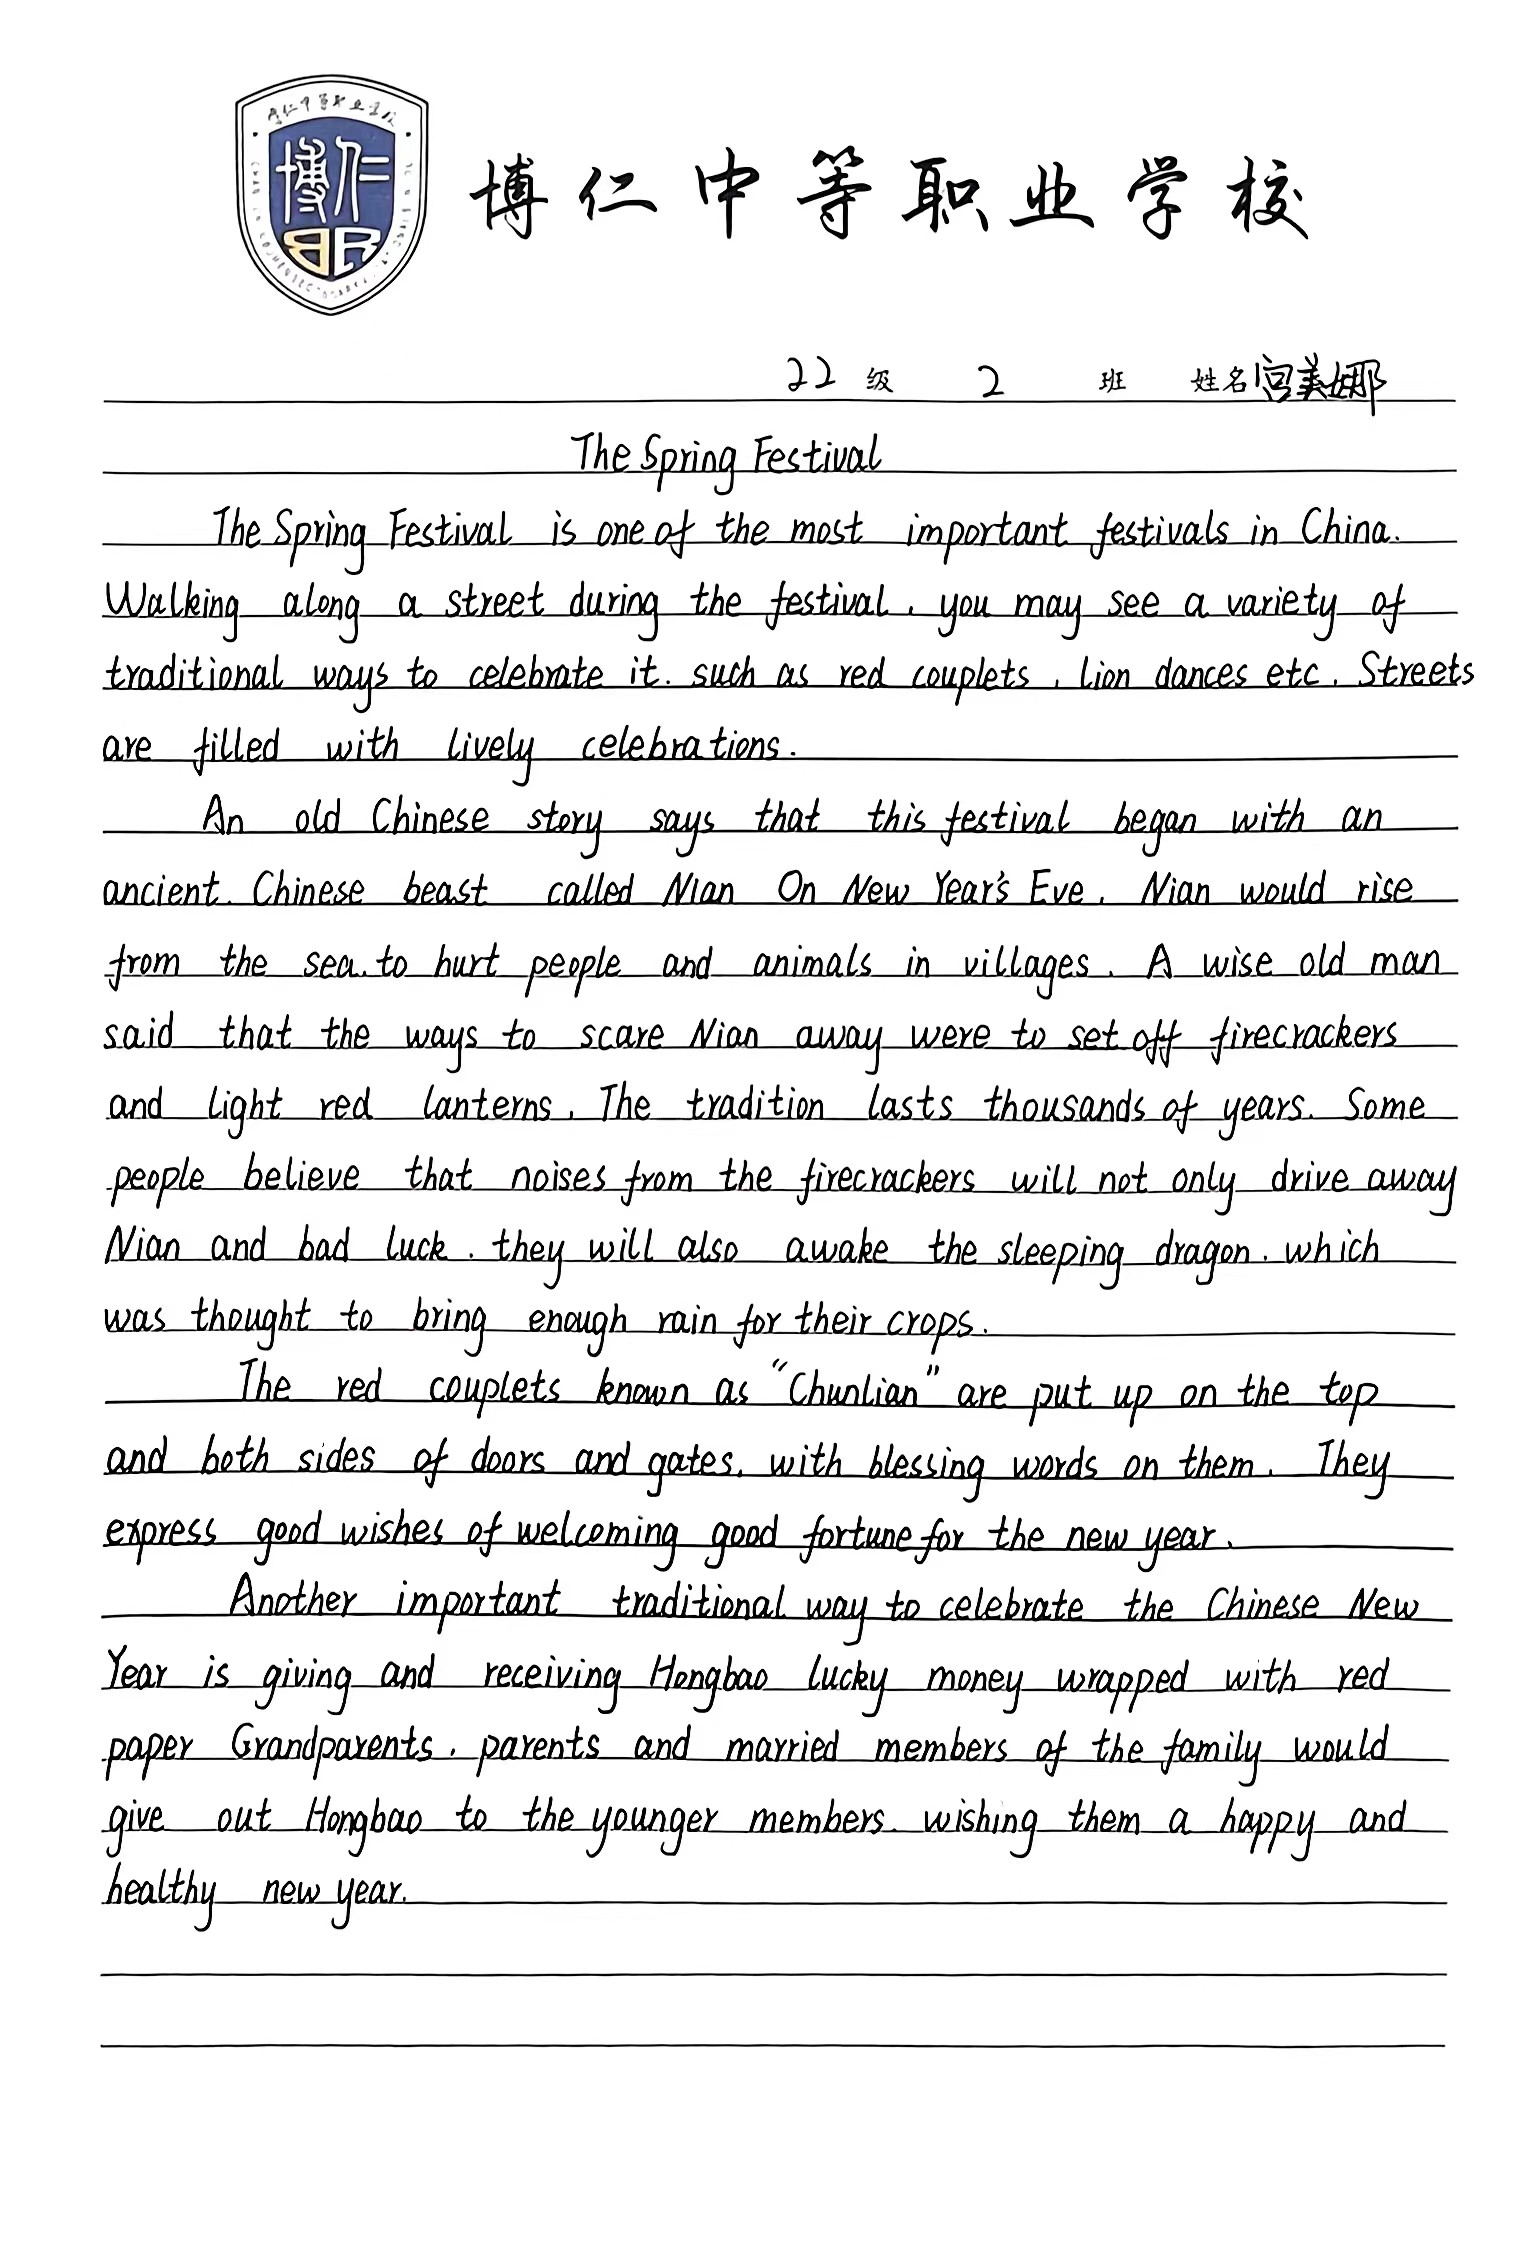 博仁中等职业学校
博仁
BR
博仁中等职业学校
22级 2 班 姓名宫美娜
The Spring Festival
The Spring Festival is one of the most important festivals in China.
Walking along a street during the festival, you may see a variety of
traditional ways to celebrate it. such as red couplets, lion dances etc. Streets
are filled with lively celebrations.
An old Chinese story says that this festival began with an
ancient. Chinese beast called Nian On New Year's Eve, Nian would rise
from the sea. to hurt people and animals in villages. A wise old man
said that the ways to scare Nian away were to set off firecrackers
and light red lanterns. The tradition lasts thousands of years. Some
people believe that noises from the firecrackers will not only drive away
Nian and bad luck. they will also awake the sleeping dragon. which
was thought to bring enough rain for their crops.
The red couplets known as "Chunlian" are put up on the top
and both sides of doors and gates, with blessing words on them. They
express good wishes of welcoming good fortune for the new year.
Another important traditional way to celebrate the Chinese New
Year is giving and receiving Hongbao lucky money wrapped with red
paper Grandparents, parents and married members of the family would
give out Hongbao to the younger members. wishing them a happy and
healthy new year.